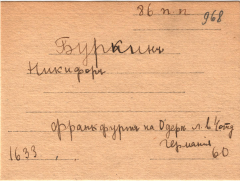 86 п п 968
Буркинъ
Никифоръ
Франкфуртъ на Одерѣ л. в.
Германія
1633 , 60